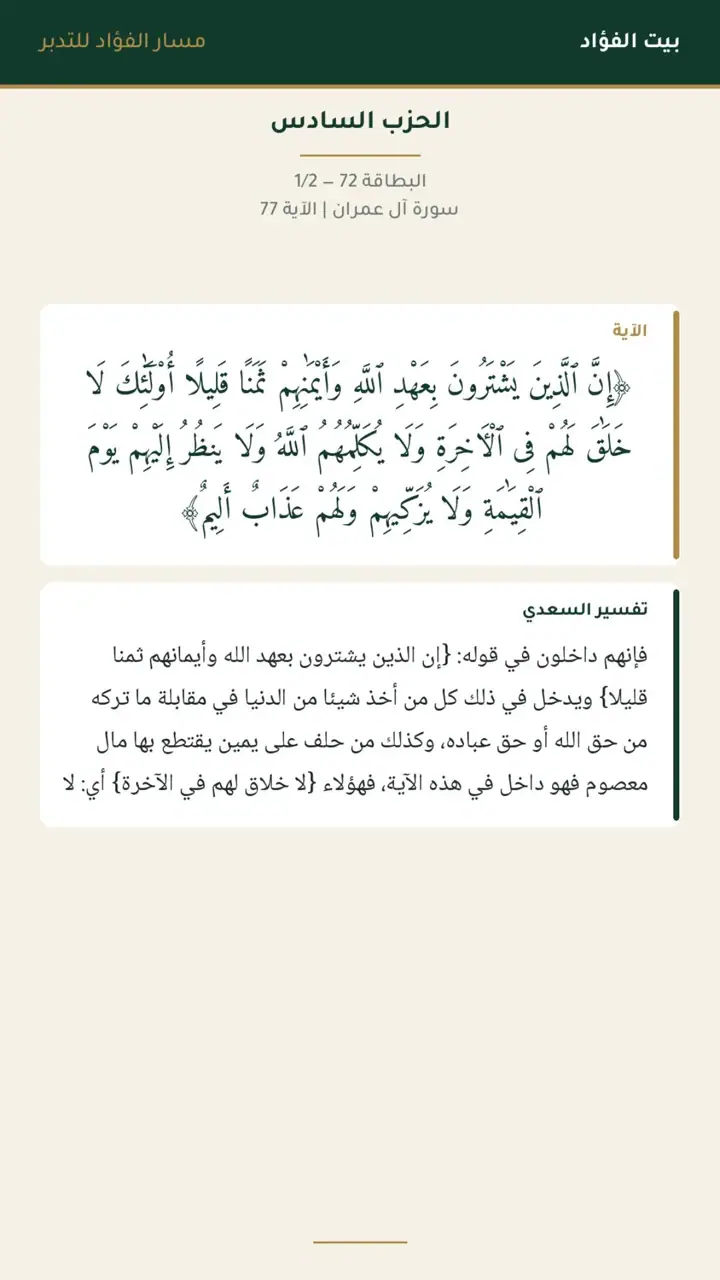 بيت الفؤاد
مسار الفؤاد للتدبر
الحزب السادس
البطاقة 72 – 1/2
سورة آل عمران | الآية 77
الآية
﴿إِنَّ ٱلَّذِينَ يَشْتَرُونَ بِعَهْدِ ٱللَّهِ وَأَيْمَٰنِهِمْ ثَمَنًا قَلِيلًا أُو۟لَٰٓئِكَ لَا
خَلَٰقَ لَهُمْ فِى ٱلْءَاخِرَةِ وَلَا يُكَلِّمُهُمُ ٱللَّهُ وَلَا يَنظُرُ إِلَيْهِمْ يَوْمَ
ٱلْقِيَٰمَةِ وَلَا يُزَكِّيهِمْ وَلَهُمْ عَذَابٌ أَلِيمٌ﴾
تفسير السعدي
فإنهم داخلون في قوله: {إن الذين يشترون بعهد الله وأيمانهم ثمنا
قليلا} ويدخل في ذلك كل من أخذ شيئا من الدنيا في مقابلة ما تركه
من حق الله أو حق عباده، وكذلك من حلف على يمين يقتطع بها مال
معصوم فهو داخل في هذه الآية، فهؤلاء {لا خلاق لهم في الآخرة} أي: لا